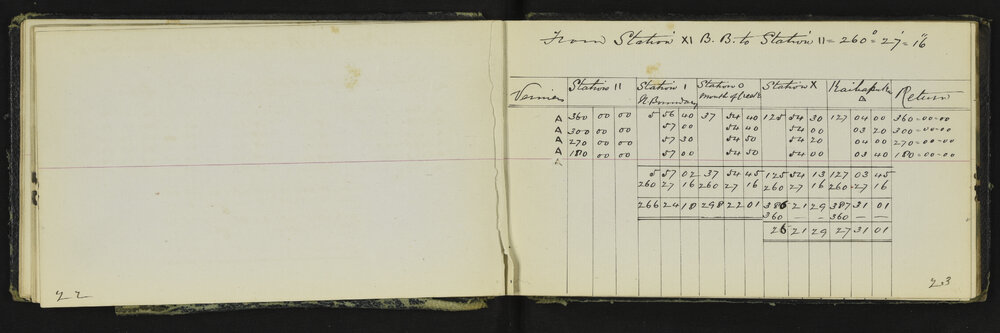 From Station XI B. B. to Station II = 260° = 27' = 16"
Verniers Station II Station I Station O Station X Return
Bounday Mouth of Creek △
A 360 00 00 5 56 40 37 54 40 125 54 30 127 04 00 360=00=00
A 300 00 00 57 00 54 40 54 00 03 20 300=00=00
A 270 00 00 57 30 54 50 54 20 04 00 270=00=00
A 180 00 00 57 00 54 50 54 00 03 40 180=00=00
5 57 02 37 54 45 125 54 13 127 03 45
260 27 16 260 27 16 260 27 16 260 27 16
266 24 18 298 22 01 386 21 29 387 31 01
360 — — 360 — —
26 21 29 27 31 01
22
23